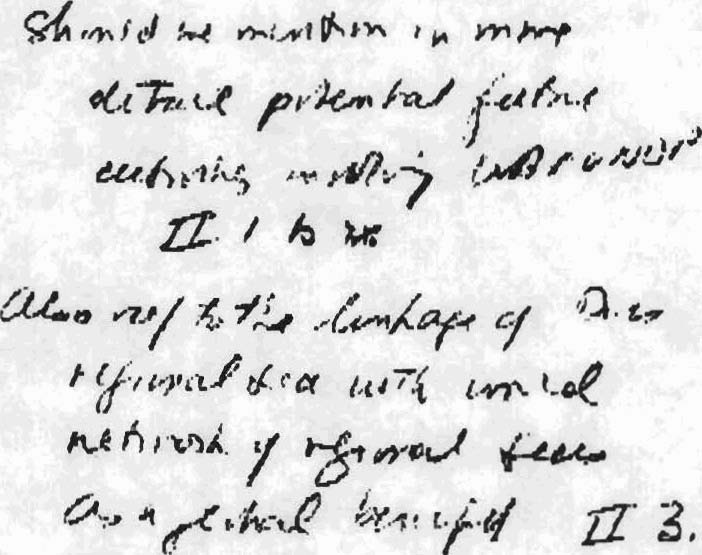 Should we mention in more
detail potential future
activities involving
II. 1 to
Also ref to the linkage of this
regional sea with world
network of regional seas
as a global benefit II 3.